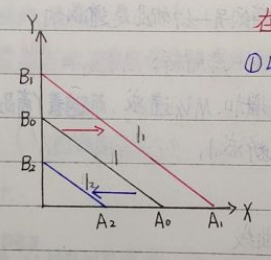 Y
在
①
B₁
B₀
B₂
l₁
l
l₂
A₂ A₀ A₁ X